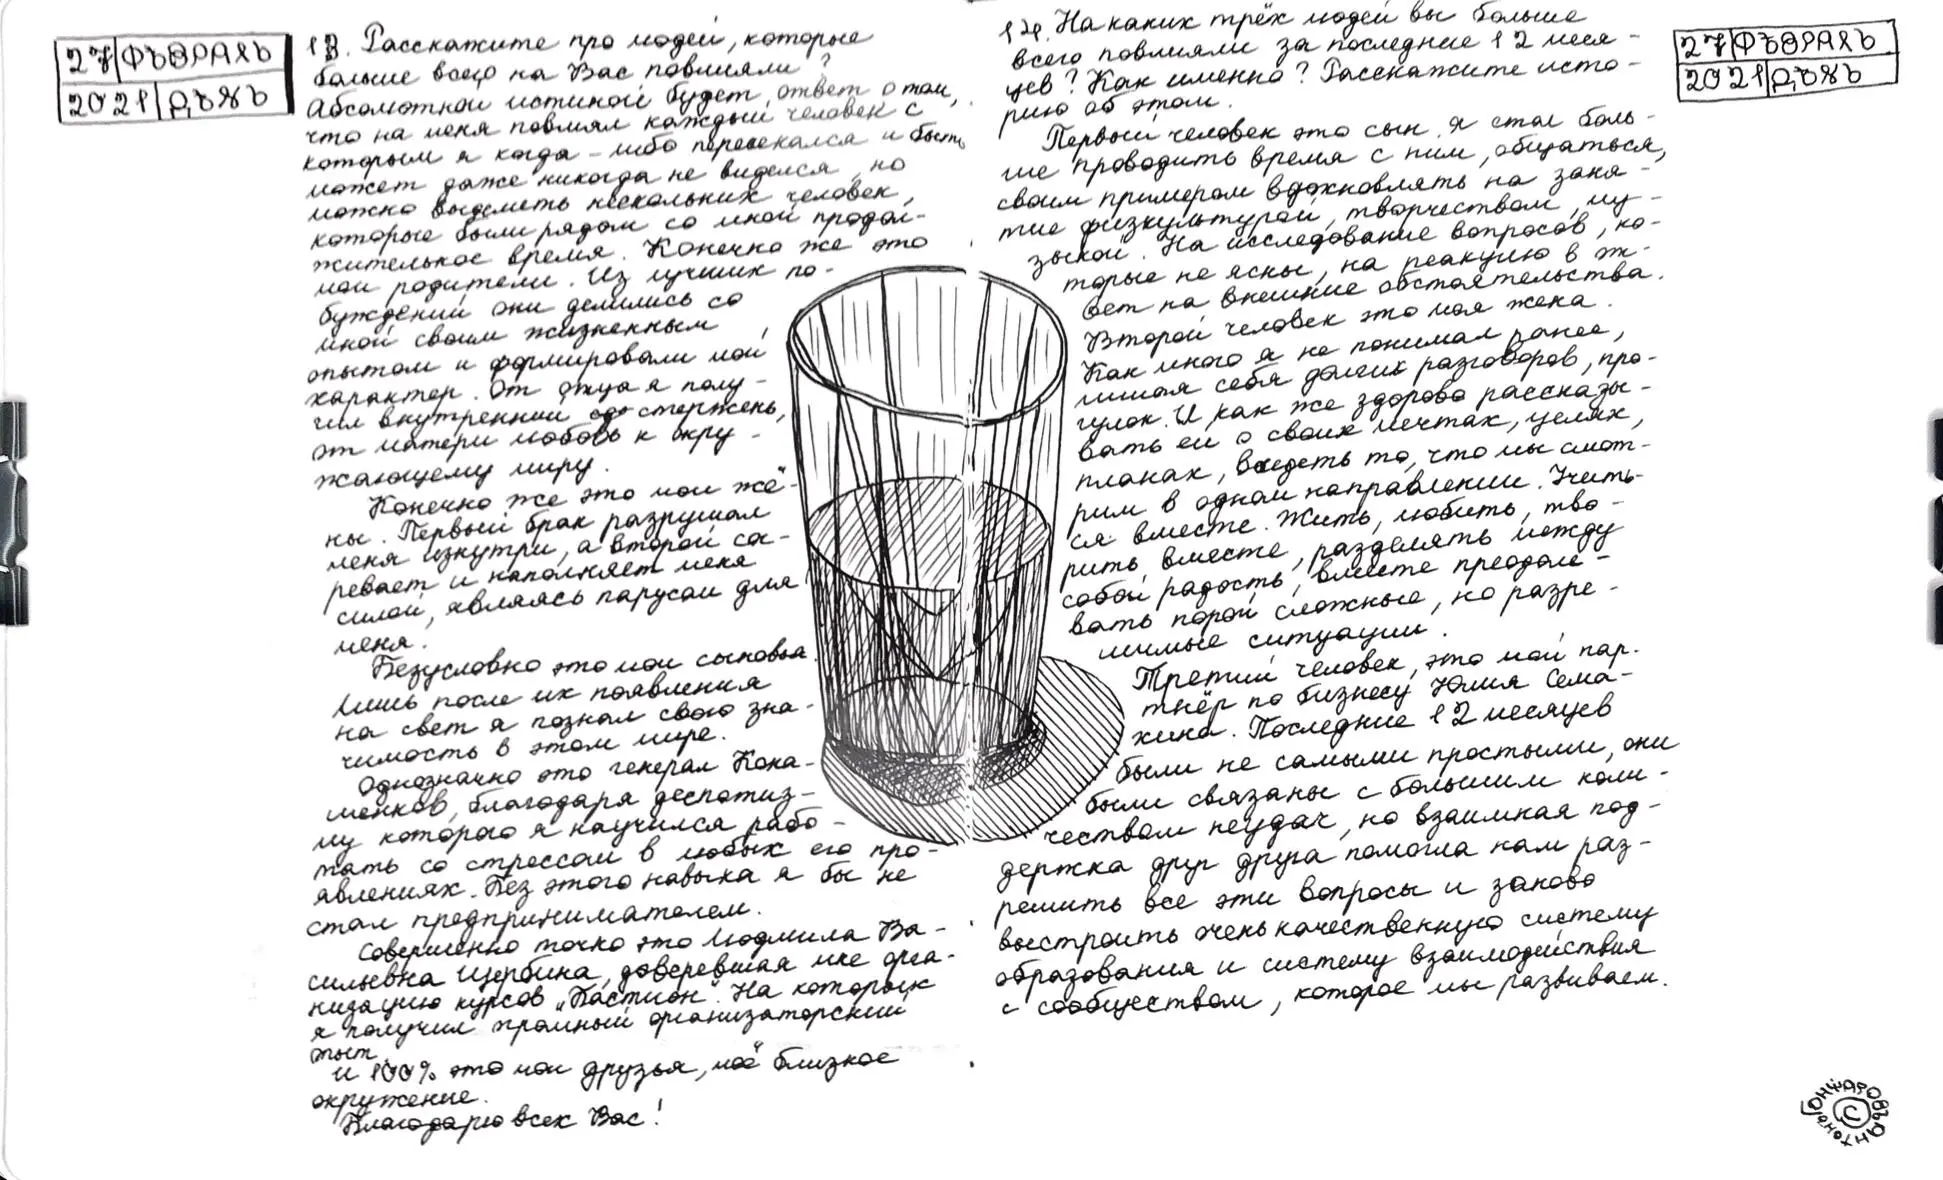 27 ФЪВРАЛЬ
2021 ДЪЖЬ
13. Расскажите про людей, которые
больше всего на Вас повлияли?
Абсолютной истиной будет ответ о том,
что на меня повлиял каждый человек с
которым я когда-либо пересекался и быть
может даже никогда не виделся, но
можно выделить нескольких человек,
которые были рядом со мной продол-
жительное время. Конечно же это
мои родители. Из лучших по-
буждений они делились со
мной своим жизненным
опытом и формировали мой
характер. От отца я полу-
чил внутренний стержень,
от матери любовь к окру-
жающему миру.
Конечно же это мои жё-
ны. Первый брак разрушал
меня изнутри, а второй со-
ревает и наполняет меня
силой, являясь парусом для
меня.
Безусловно это мои сыновья.
Лишь после их появления
на свет я познал свою зна-
чимость в этом мире.
Однозначно это генерал Кона-
шенков, благодаря деспотиз-
му которого я научился рабо-
тать со стрессом в любых его про-
явлениях. Без этого навыка я бы не
стал предпринимателем.
Совершенно точно это Людмила Ва-
сильевна Щербина, доверевшая мне орга-
низацию курсов "Бастион". На которых
я получил громный организаторский
опыт.
И 100% это мои друзья, моё близкое
окружение.
Благодарю всех Вас!
14. На каких трёх людей вы больше
всего повлияли за последние 12 меся-
цев? Как именно? Расскажите исто-
рию об этом.
Первый человек это сын. Я стал боль-
ше проводить время с ним, общаться,
своим примером вдохновлять на заня-
тие физкультурой, творчеством, му-
зыкой. На исследование вопросов, ко-
торые не ясны, на реакцию в
ответ на внешние обстоятельства.
Второй человек это моя жена.
Как много я не понимал ранее,
лишая себя долгих разговоров, про-
гулок. И как же здорово рассказы-
вать ей о своих мечтах, целях,
планах, видеть то, что мы смот-
рим в одном направлении. Учить-
ся вместе. Жить, любить, тво-
рить вместе, разделять между
собой радость, вместе преодоле-
вать порой сложные, но разре-
шимые ситуации.
Третий человек, это мой пар-
тнёр по бизнесу Юлия Сема-
хина. Последние 12 месяцев
были не самыми простыми, они
были связаны с большим коли-
чеством неудач, но взаимная под-
держка друг друга помогла нам раз-
решить все эти вопросы и заново
выстроить очень качественную систему
образования и систему взаимодействия
с сообществом, которое мы развиваем.
27 ФЪВРАЛЬ
2021 ДЪЖЬ
©